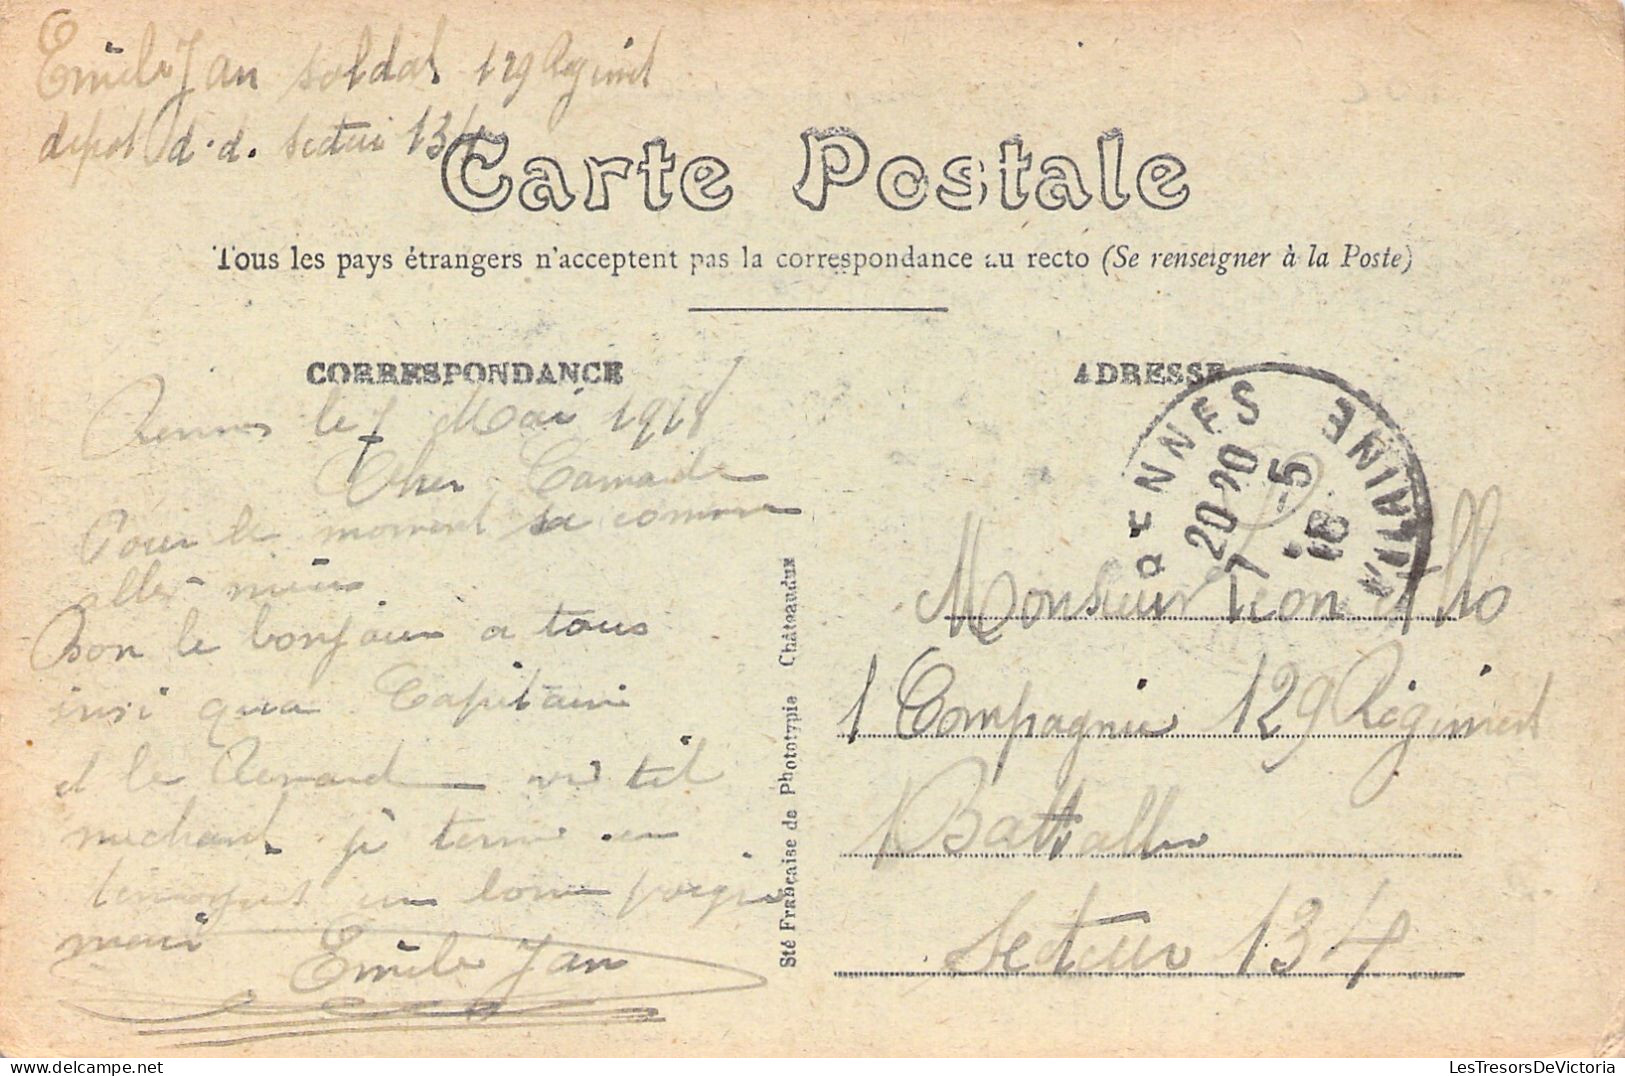 Emile Jan soldat 129 Regiment
depot d.d. secteur 134
Carte Postale
Tous les pays étrangers n'acceptent pas la correspondance au recto (Se renseigner à la Poste)
CORRESPONDANCE
Rennes le 7 Mai 1918
Cher Camarade
Pour le moment sa comme
aller mieu
Bon le bonjour a tous
insi qua Capitaine
et le Renard til
mechant je termine en
un bone
Emile Jan
Sté Française de Phototypie, Châteaudun
ADRESSE
RENNES
20 20
7 -5
18
VILAINE
Monsieur Leon Allo
1 Compagnie 129 Régiment
1 Battallon
Secteur 134
LesTresorsDeVictoria